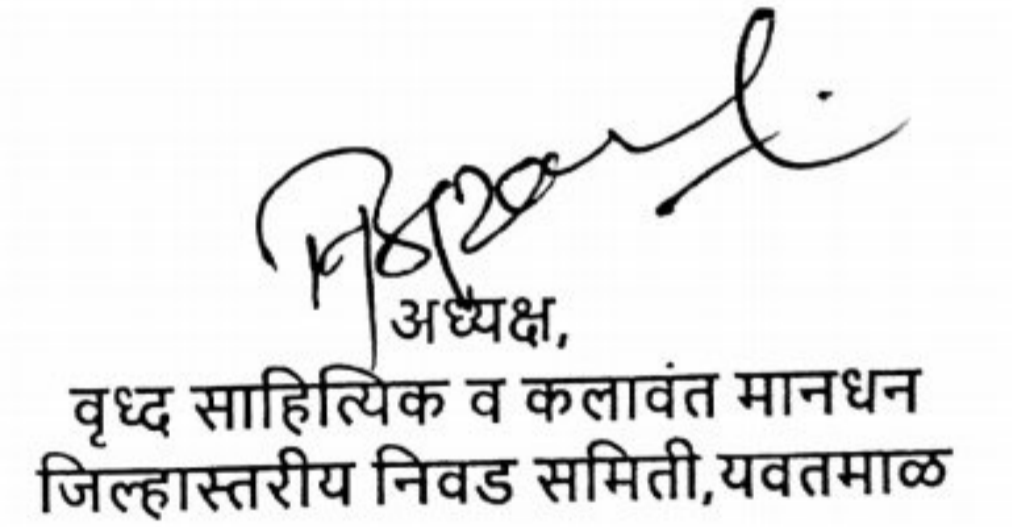 अध्यक्ष,
वृध्द साहित्यिक व कलावंत मानधन
जिल्हास्तरीय निवड समिती,यवतमाळ